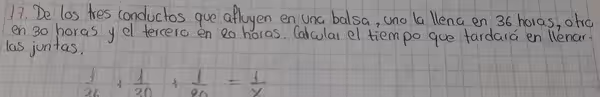 17. De los tres conductos que afluyen en una balsa, uno la llena en 36 horas, otro
en 30 horas y el tercero en 20 horas. Calcular el tiempo que tardará en llenar-
las juntas.
1/36 + 1/30 + 1/20 = 1/x